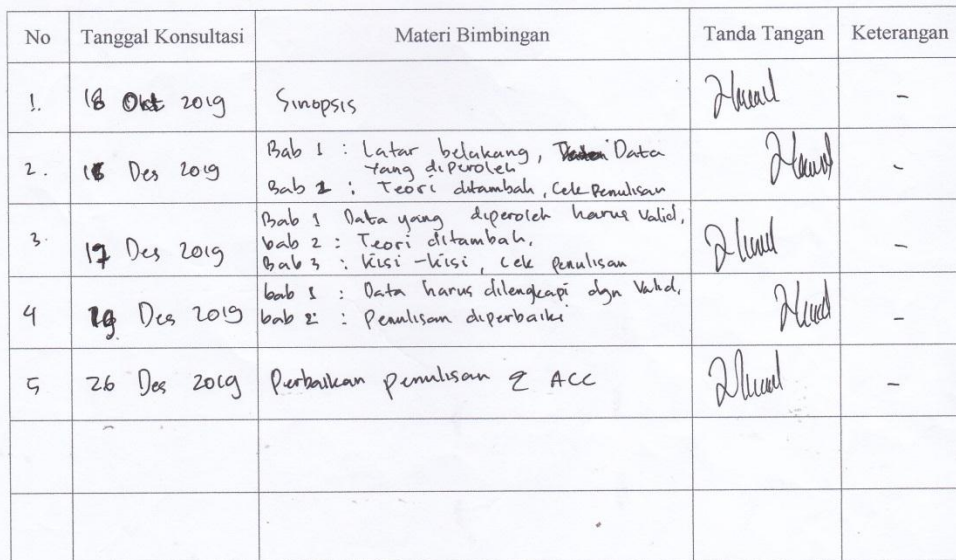 No Tanggal Konsultasi Materi Bimbingan Tanda Tangan Keterangan
1. 18 Okt 2019 Sinopsis -
2. Des 2019 Bab 1 : Latar belakang, Data
yang diperoleh
Bab 2 : Teori ditambah, Cek Penulisan -
3. 17 Des 2019 Bab 1 Data yang diperoleh harus valid,
bab 2 : Teori ditambah,
Bab 3 : Kisi-kisi, Cek Penulisan -
4 19 Des 2019 bab 1 : Data harus dilengkapi dgn Valid,
bab 2 : Penulisan diperbaiki -
5 26 Des 2019 Perbaikan penulisan & ACC -